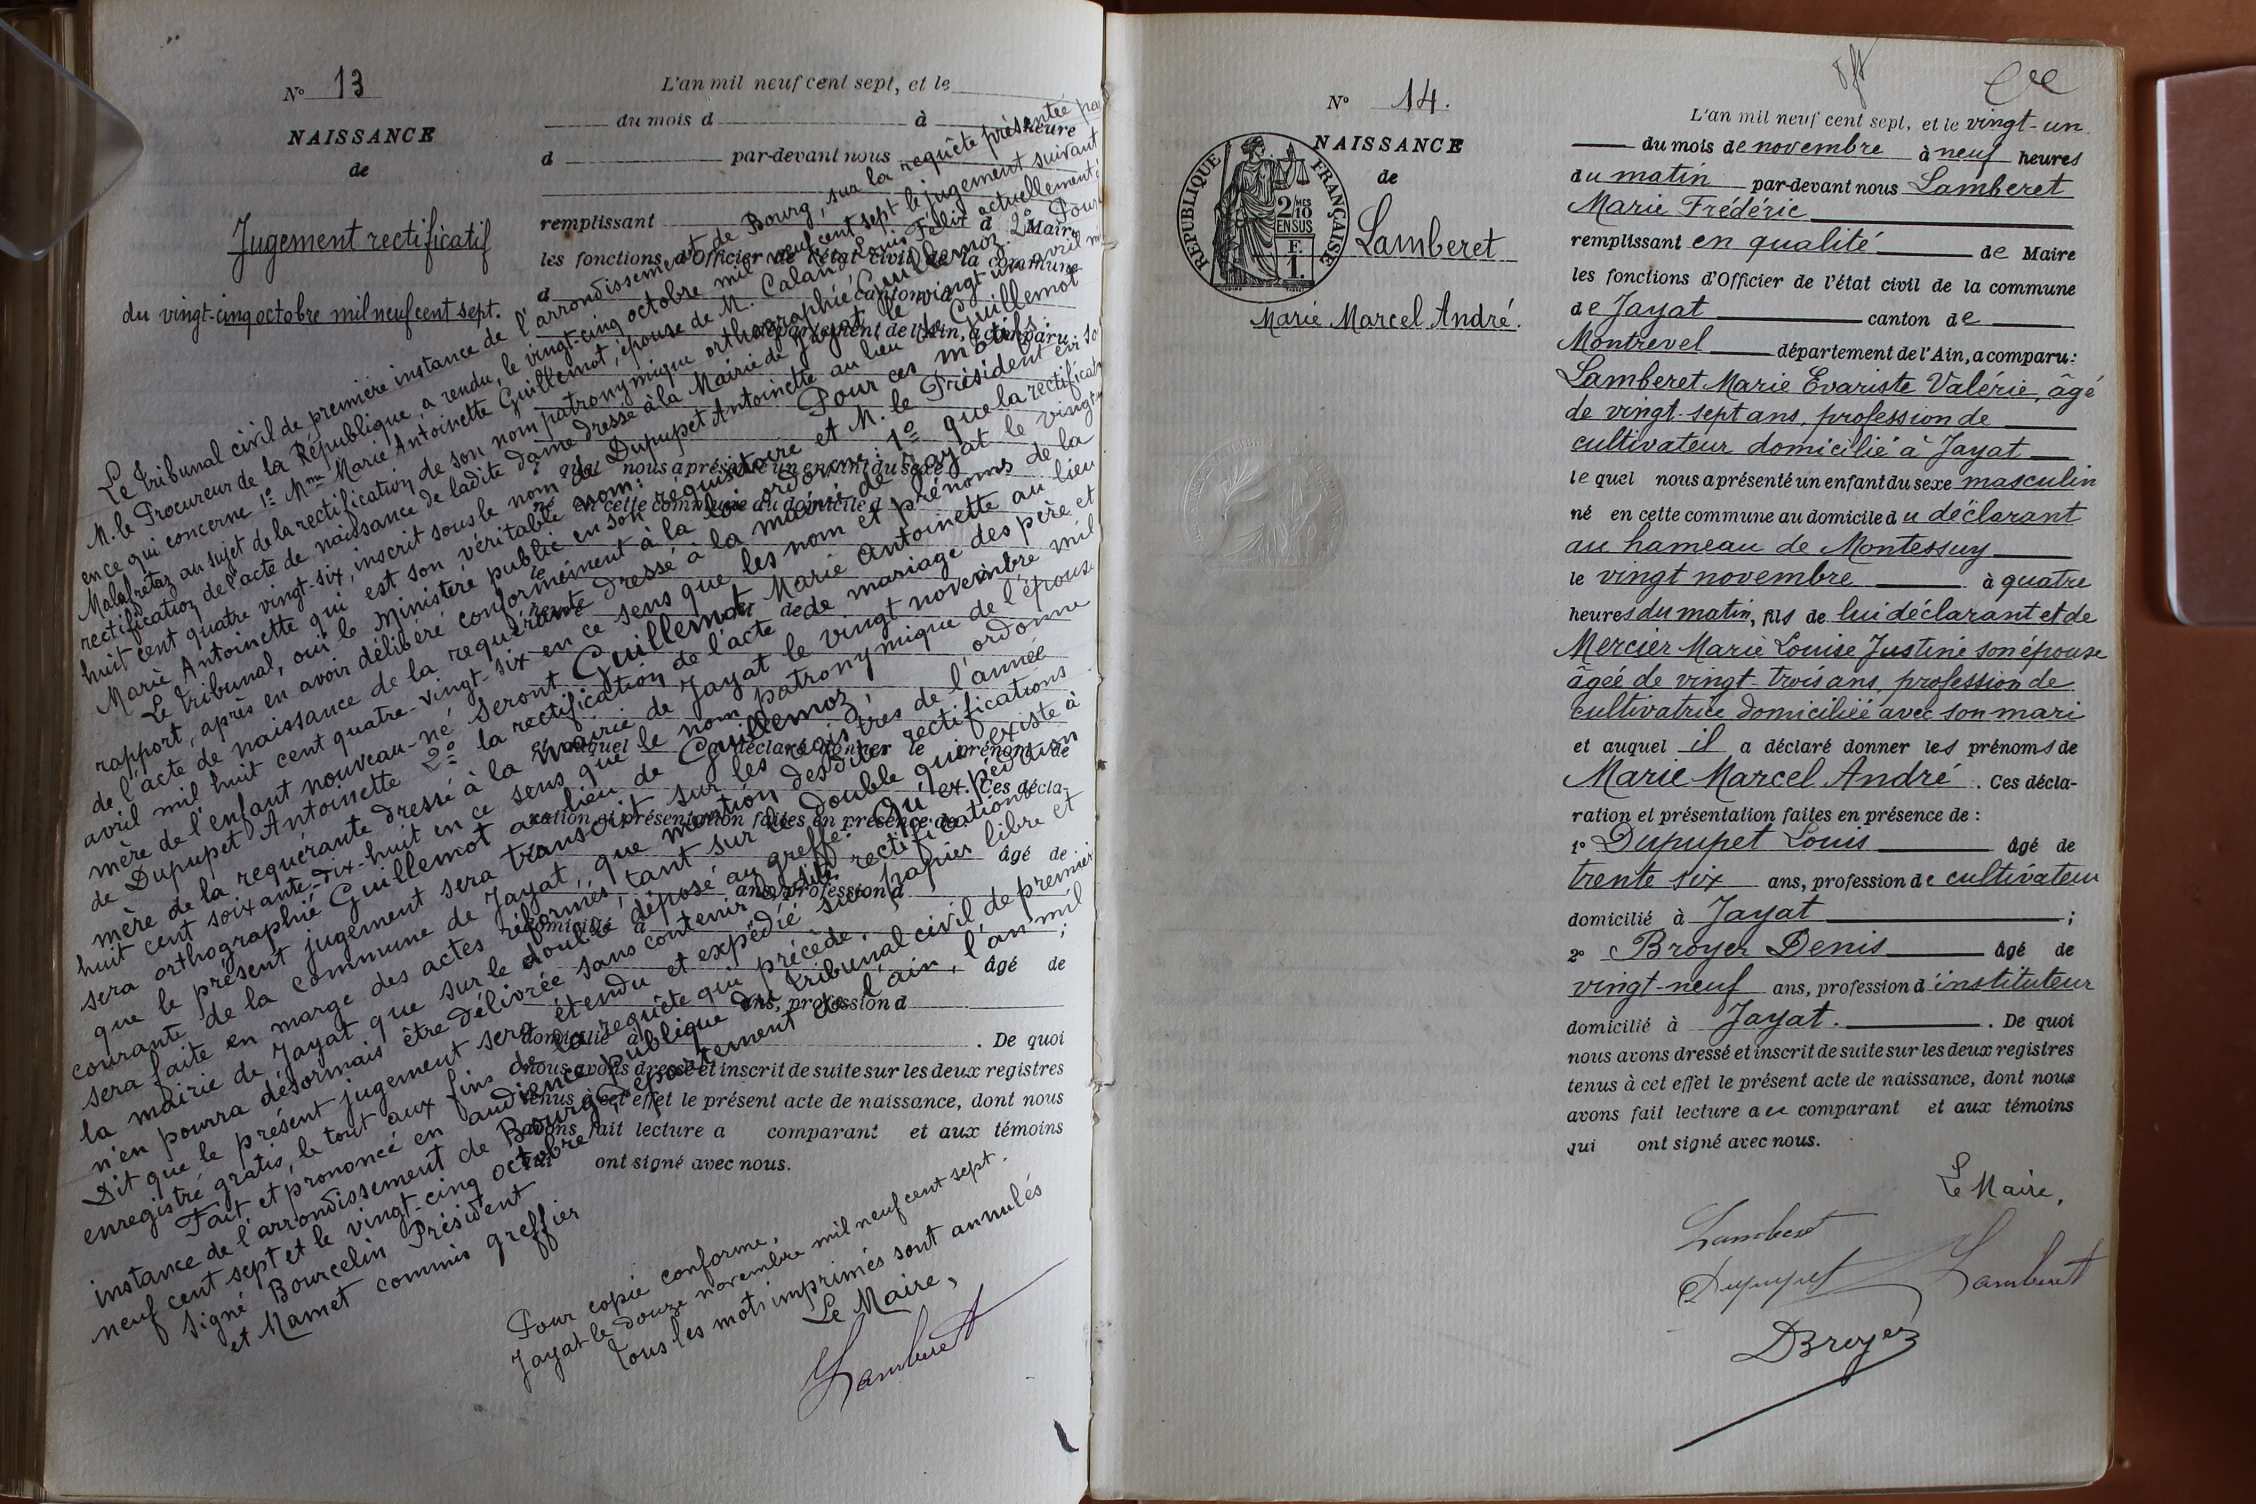 N° 13
NAISSANCE
de
Jugement rectificatif
du vingt-cinq octobre mil neuf cent sept.
L'an mil neuf cent sept, et le
du mois d à heure
d par-devant nous
remplissant d Maire
les fonctions d'Officier de l'état civil de la commune
d canton d
département de l'Ain, a comparu:
quel nous a présenté un enfant du sexe
né en cette commune au domicile d
le
heure
et auquel a déclaré donner le prénom de
. Ces décla-
ration et présentation faites en présence de:
âgé de
ans, profession d
domicilié à ;
âgé de
ans, profession d
domicilié à . De quoi
nous avons dressé et inscrit de suite sur les deux registres
tenus à cet effet le présent acte de naissance, dont nous
avons fait lecture a comparant et aux témoins
qui ont signé avec nous.
Le Tribunal civil de première instance de l'arrondissement de Bourg, sur la requête présentée par
M. le Procureur de la République, a rendu, le vingt-cinq octobre mil neuf cent sept le jugement suivant
en ce qui concerne 1° Mme Marie Antoinette Guillemot, épouse de M. Caland Louis Félix actuellement à
Malafretaz au sujet de la rectification de son nom patronymique orthographié Guillemoz. 2° Pour
rectification de l'acte de naissance de ladite dame dressé à la Mairie de Jayat le vingt un avril mil
huit cent quatre vingt-six, inscrit sous le nom de Dupupet Antoinette au lieu de Guillemot
Marie Antoinette qui est son véritable nom: Pour ces motifs:
Le Tribunal, ouï le Ministère public en son réquisitoire et M. le Président en son
rapport, après en avoir délibéré conformément à la loi ordonne: 1° que la rectification
de l'acte de naissance de la requérante dressé à la mairie de Jayat le vingt-un
avril mil huit cent quatre-vingt-six en ce sens que les nom et prénoms de la
mère de l'enfant nouveau-né seront Guillemot Marie Antoinette au lieu
de Dupupet Antoinette 2° la rectification de l'acte de mariage des père et
mère de la requérante dressé à la mairie de Jayat le vingt novembre mil
huit cent soixante-dix-huit en ce sens que le nom patronymique de l'épouse
sera orthographié Guillemot au lieu de Guillemoz, ordonne
que le présent jugement sera transcrit sur les registres de l'année
courante de la commune de Jayat, que mention desdites rectifications
sera faite en marge des actes réformés, tant sur le double qui existe à
la mairie de Jayat que sur le double déposé au greffe. Qu'expédition
n'en pourra désormais être délivrée sans contenir lesdites rectifications
Dit que le présent jugement sera étendu et expédié sur papier libre et
enregistré gratis, le tout aux fins de la requête qui précède.
Fait et prononcé en audience publique du tribunal civil de première
instance de l'arrondissement de Bourg, département de l'ain, l'an mil
neuf cent sept et le vingt-cinq octobre
Signé Bourcelin Président
et Mamet commis greffier
Pour copie conforme,
Jayat le douze novembre mil neuf cent sept.
Tous les mots imprimés sont annulés
Le Maire,
Lamberet
N° 14.
NAISSANCE
de
RÉPUBLIQUE FRANÇAISE
2/10MES
EN SUS
F.
1.
Lamberet
Marie Marcel André.
L'an mil neuf cent sept, et le vingt-un
du mois de novembre à neuf heures
du matin par-devant nous Lamberet
Marie Frédéric
remplissant en qualité de Maire
les fonctions d'Officier de l'état civil de la commune
de Jayat canton de
Montrevel département de l'Ain, a comparu:
Lamberet Marie Evariste Valérie, âgé
de vingt-sept ans, profession de
cultivateur domicilié à Jayat
lequel nous a présenté un enfant du sexe masculin
né en cette commune au domicile du déclarant
au hameau de Montessuy
le vingt novembre à quatre
heures du matin, fils de lui déclarant et de
Mercier Marie Louise Justine son épouse
âgée de vingt-trois ans, profession de
cultivatrice domiciliée avec son mari
et auquel il a déclaré donner les prénoms de
Marie Marcel André . Ces décla-
ration et présentation faites en présence de :
1° Dupupet Louis âgé de
trente six ans, profession de cultivateur
domicilié à Jayat ;
2° Broyer Denis âgé de
vingt-neuf ans, profession d'instituteur
domicilié à Jayat. . De quoi
nous avons dressé et inscrit de suite sur les deux registres
tenus à cet effet le présent acte de naissance, dont nous
avons fait lecture au comparant et aux témoins
qui ont signé avec nous.
Le Maire,
Lamberet
Dupupet Lamberet
DBroyer